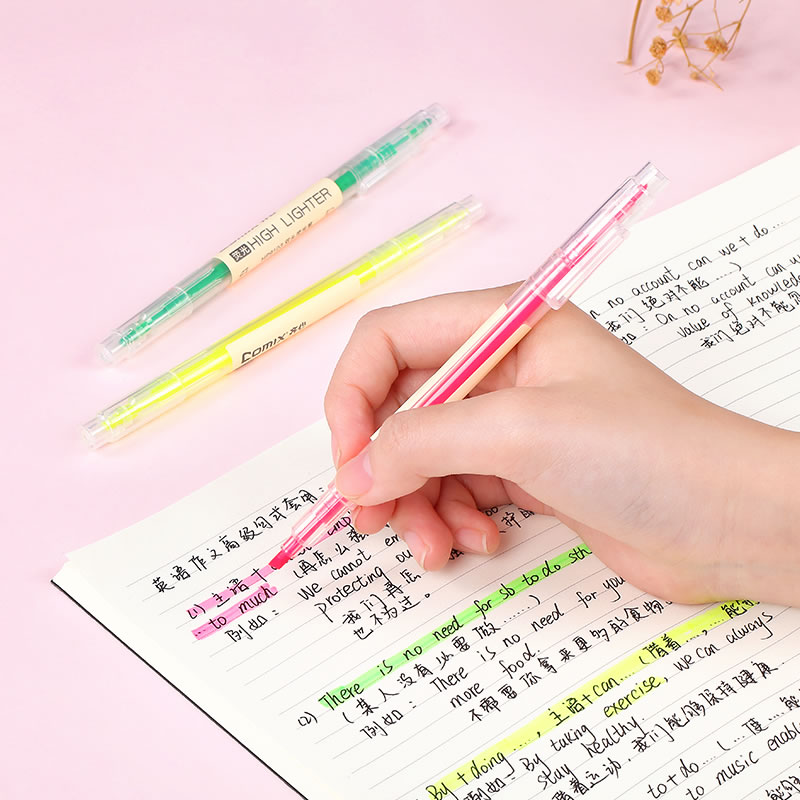 荧光 HIGH LIGHTER
Comix 齐心
英语作文高级句式套用:
(1) 主语 +
... to much (再怎么
例如: We cannot em
protecting our
我们再怎
也不为过。
(2) There is no need for sb to do sth
(某人没有必要做......)
例如: There is no need for you
more food.
不需要你拿来更多的食物
By + doing ..., 主语 + can ... (借着..., 能
例如: By takng exercise, we can always
stay healthy.
借着运动, 我们能够保持健康.
to + do ...
to music enabl
On no account can we + do ...
我们绝对不能 ...)
如: On no account can u
value of knowled
我们绝对不能